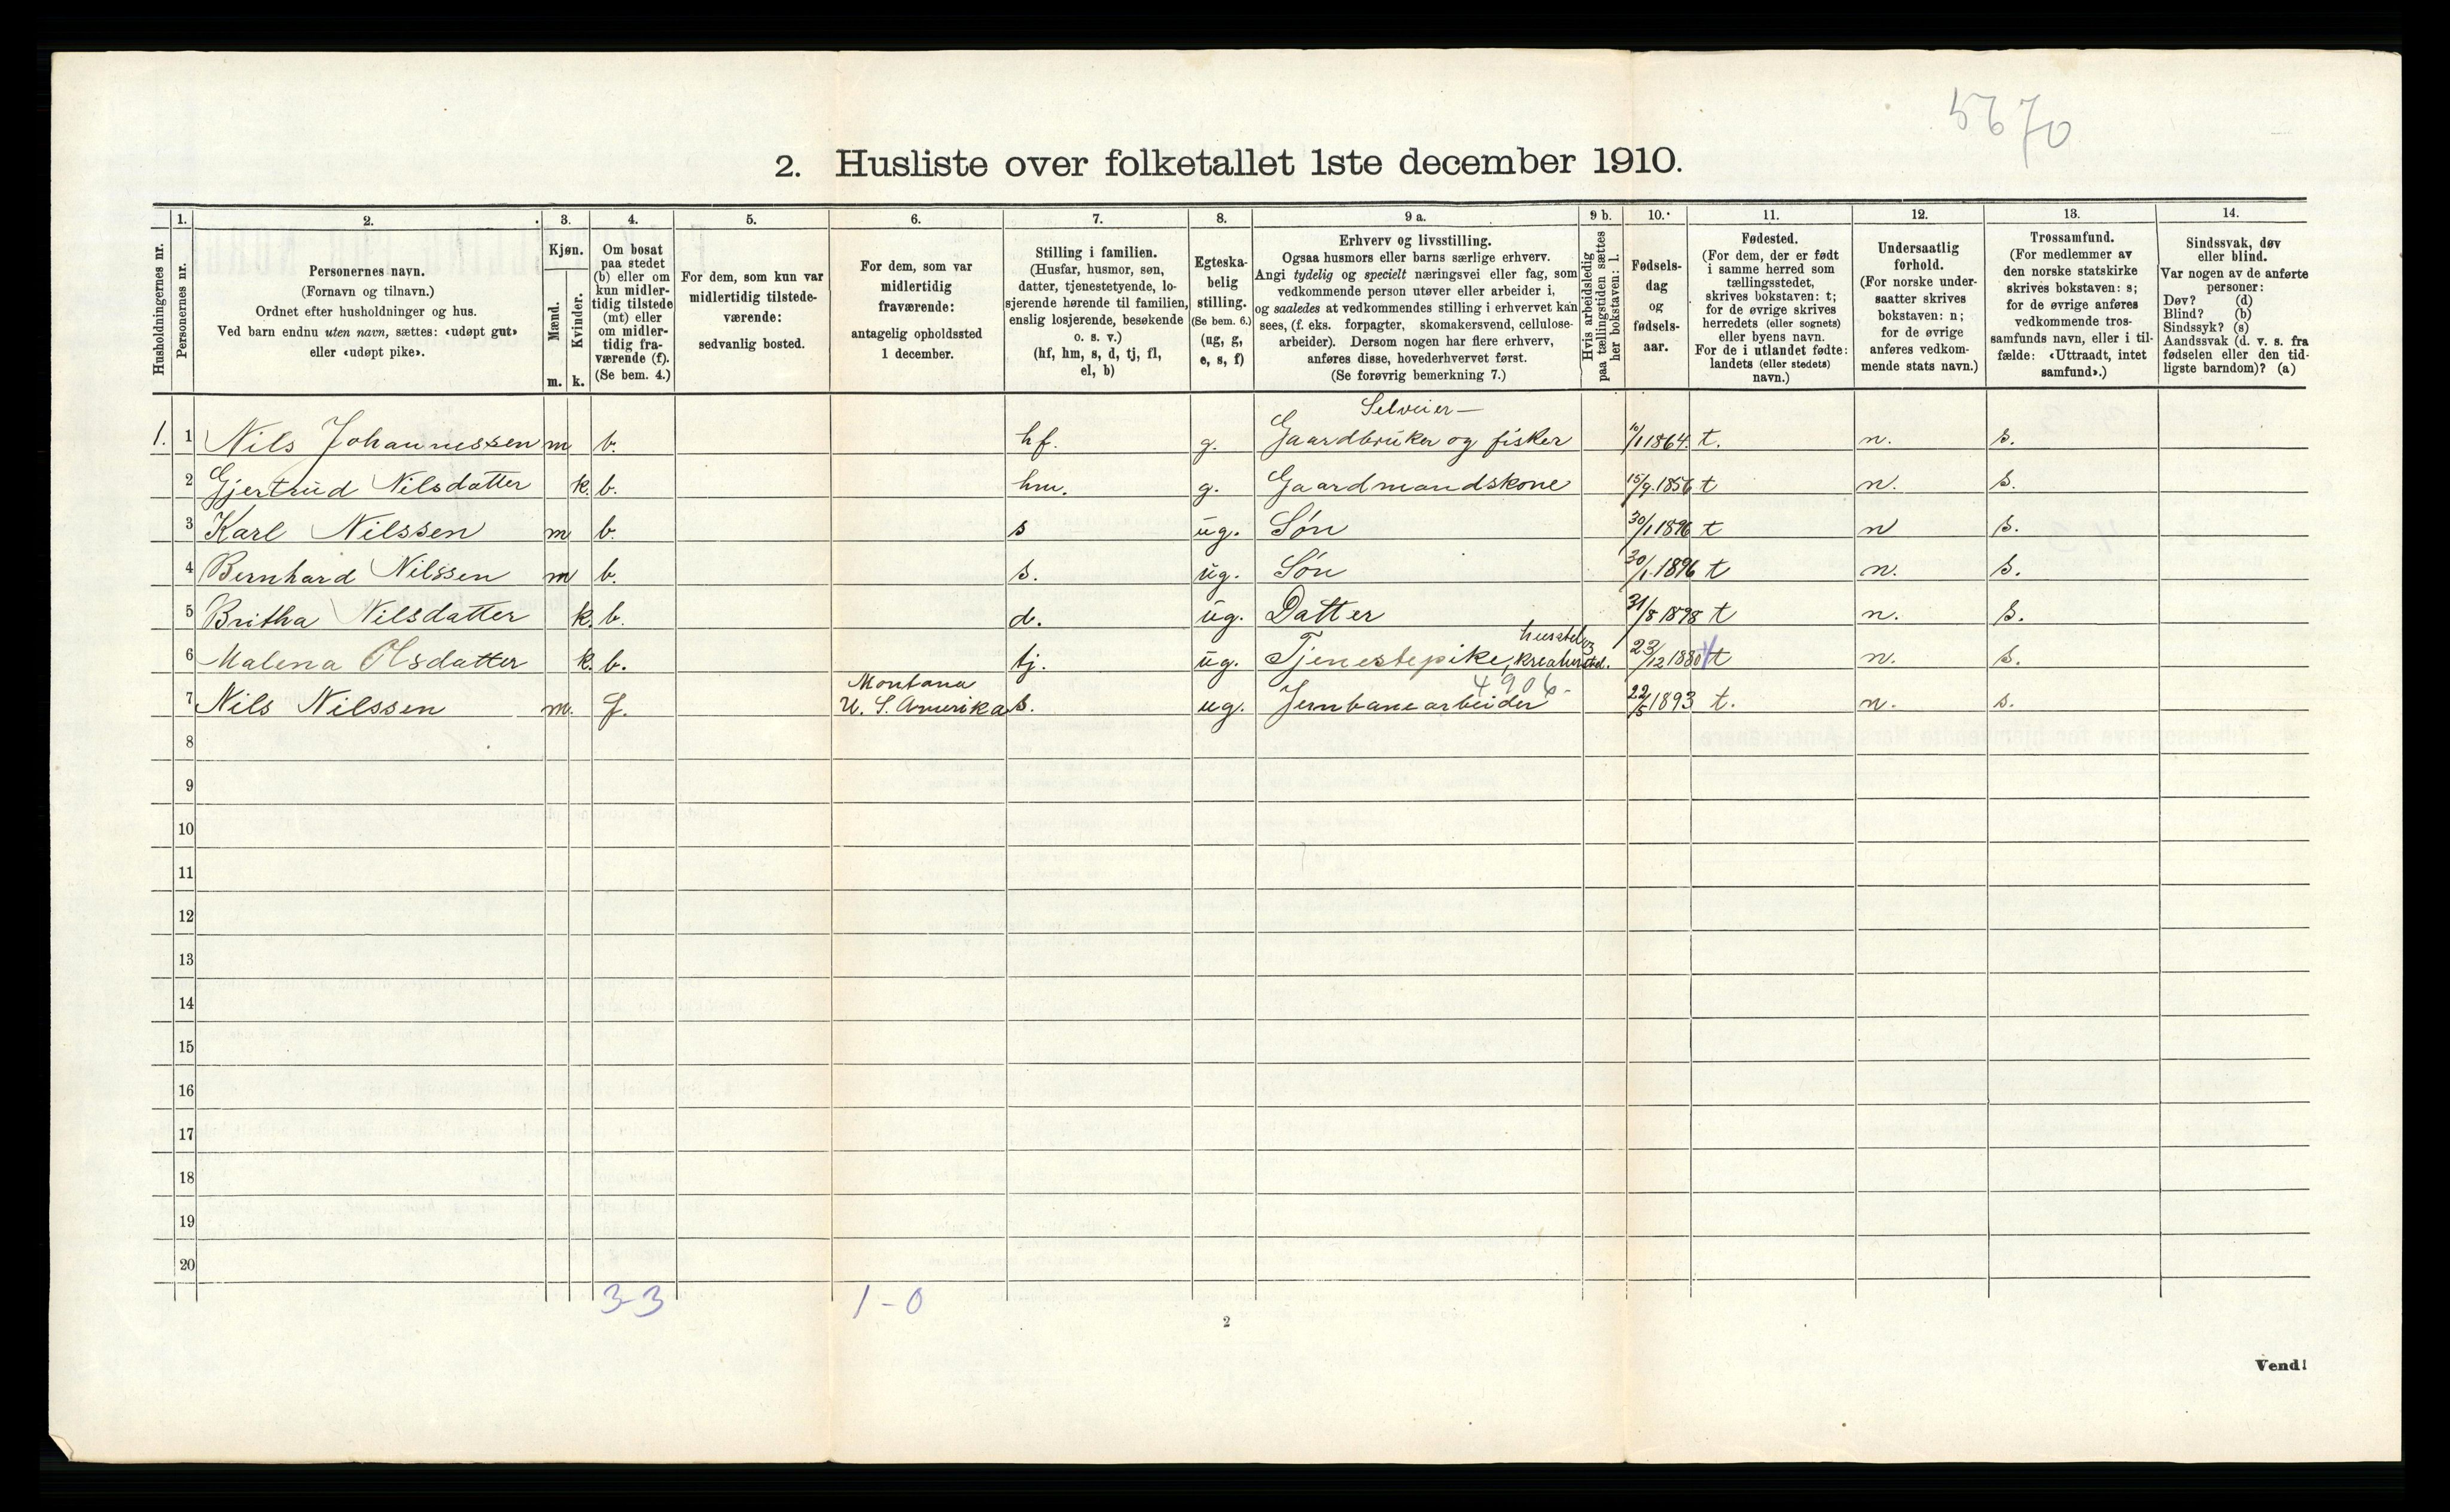 5670
2. Husliste over folketallet 1ste december 1910.
Husholdningernes nr.
1. Personernes nr.
2. Personernes navn. (Fornavn og tilnavn.) Ordnet efter husholdninger og hus. Ved barn endnu uten navn, sættes: «udøpt gut» eller «udøpt pike».
3. Kjøn. Mænd. m. Kvinder. k.
4. Om bosat paa stedet (b) eller om kun midlertidig tilstede (mt) eller om midlertidig fraværende (f). (Se bem. 4.)
5. For dem, som kun var midlertidig tilstedeværende: sedvanlig bosted.
6. For dem, som var midlertidig fraværende: antagelig opholdssted 1 december.
7. Stilling i familien. (Husfar, husmor, søn, datter, tjenestetyende, losjerende hørende til familien, enslig losjerende, besøkende o. s. v.) (hf, hm, s, d, tj, fl, el, b)
8. Egteskabelig stilling. (Se bem. 6.) (ug, g, e, s, f)
9 a. Erhverv og livsstilling. Ogsaa husmors eller barns særlige erhverv. Angi tydelig og specielt næringsvei eller fag, som vedkommende person utøver eller arbeider i, og saaledes at vedkommendes stilling i erhvervet kan sees, (f. eks. forpagter, skomakersvend, cellulosearbeider). Dersom nogen har flere erhverv, anføres disse, hovederhvervet først. (Se forøvrig bemerkning 7.)
9 b. Hvis arbeidsledig paa tællingstiden sættes her bokstaven: l.
10. Fødselsdag og fødselsaar.
11. Fødested. (For dem, der er født i samme herred som tællingsstedet, skrives bokstaven: t; for de øvrige skrives herredets (eller sognets) eller byens navn. For de i utlandet fødte: landets (eller stedets) navn.)
12. Undersaatlig forhold. (For norske undersaatter skrives bokstaven: n; for de øvrige anføres vedkommende stats navn.)
13. Trossamfund. (For medlemmer av den norske statskirke skrives bokstaven: s; for de øvrige anføres vedkommende trossamfunds navn, eller i tilfælde: «Uttraadt, intet samfund».)
14. Sindssvak, døv eller blind. Var nogen av de anførte personer: Døv? (d) Blind? (b) Sindssyk? (s) Aandssvak (d. v. s. fra fødselen eller den tidligste barndom)? (a)
Selveier—
1. 1 Nils Johannessen m b. hf. g. Gaardbruker og fisker 10/1 1864. t. n. s.
2 Gjertrud Nilsdatter k. b. hm. g. Gaardmandskone 15/9. 1856 t n. s.
3 Karl Nilssen m b. s ug. Søn 30/1 1896 t n s.
4 Bernhard Nilssen m b. s. ug. Søn 30/1. 1896 t n. s.
5 Britha Nilsdatter k. b. d. ug. Datter 31/8 1898 t n. s.
husstel og
6 Malena Olsdatter k. b. tj. ug. Tjenestepike, kreaturstel. 23/12 1880 t n. s.
Montana 4906-
7 Nils Nilssen m. f. U. S. Amerika s. ug. Jernbanearbeider 22/5 1893 t. n. s.
8
9
10
11
12
13
14
15
16
17
18
19
20
3-3 1-0
2
Vend!